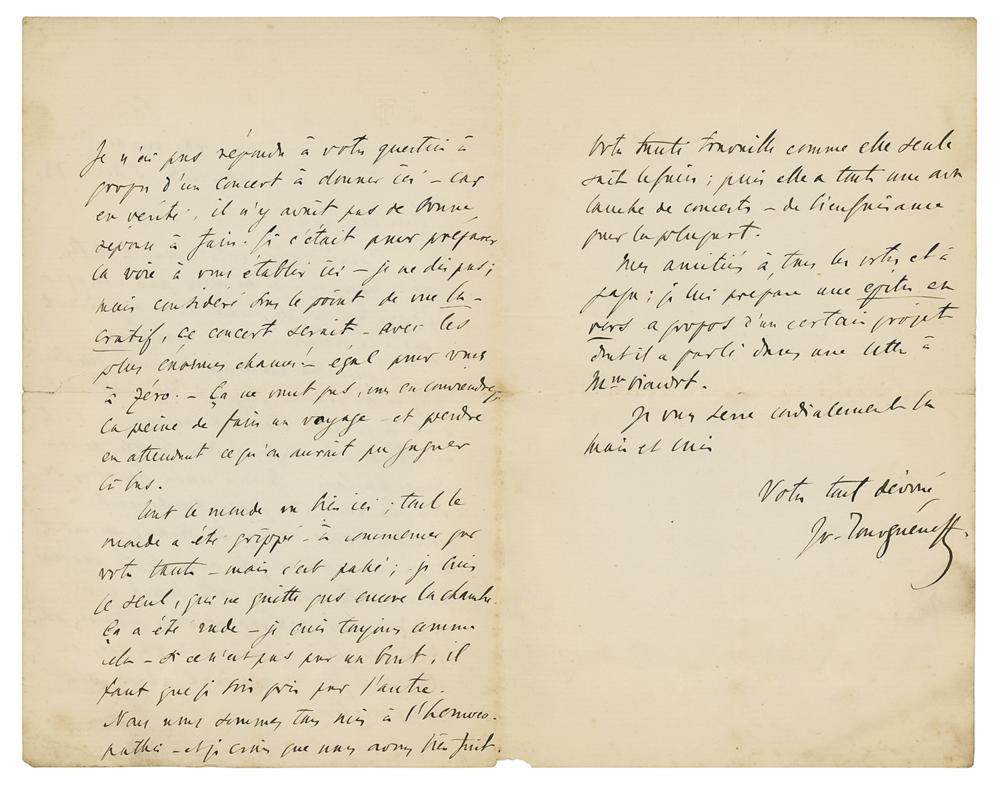 Je n'ai pas répondu à votre question à
propos d'un concert à donner ici – car
en vérité, il n'y avait pas de bonne
réponse à faire. Si c'était pour préparer
la voie à vous établir ici – je ne dis pas;
mais considéré sous le point de vue lu-
cratif, ce concert serait – avec les
plus énormes chances! – égal pour vous
à zéro. – Ça ne vaut pas, vous en conviendrez,
la peine de faire un voyage – et perdre
en attendant ce qu'on aurait pu gagner
là bas.
Tout le monde va bien ici; tout le
monde a été grippé – à commencer par
votre tante – mais c'est passé; je suis
le seul, qui ne quitte pas encore la chambre.
Ça a été rude – je suis toujours comme
cela – si ce n'est pas par un bout, il
faut que je sois pris par l'autre.
Nous nous sommes tous mis à l'homoeo-
pathie – et je crois que nous avons bien fait.
Votre tante travaille comme elle seule
sait le faire; puis elle a toute une ava
lanche de concerts – de bienfaisance
pour la plupart.
Mes amitiés à tous les votres et à
papa; je lui prépare une épitre en
vers a propos d'un certain projet
dont il a parlé dans une lettre à
Mme Viardot.
Je vous serre cordialement la
main et suis
Votre tout dévoué
Iv. Tourguéneff